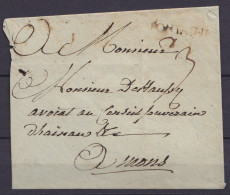 A Monsieur
Monsieur DeHaussy
avocat au Conseil Souverain
dhainau &c
A mons